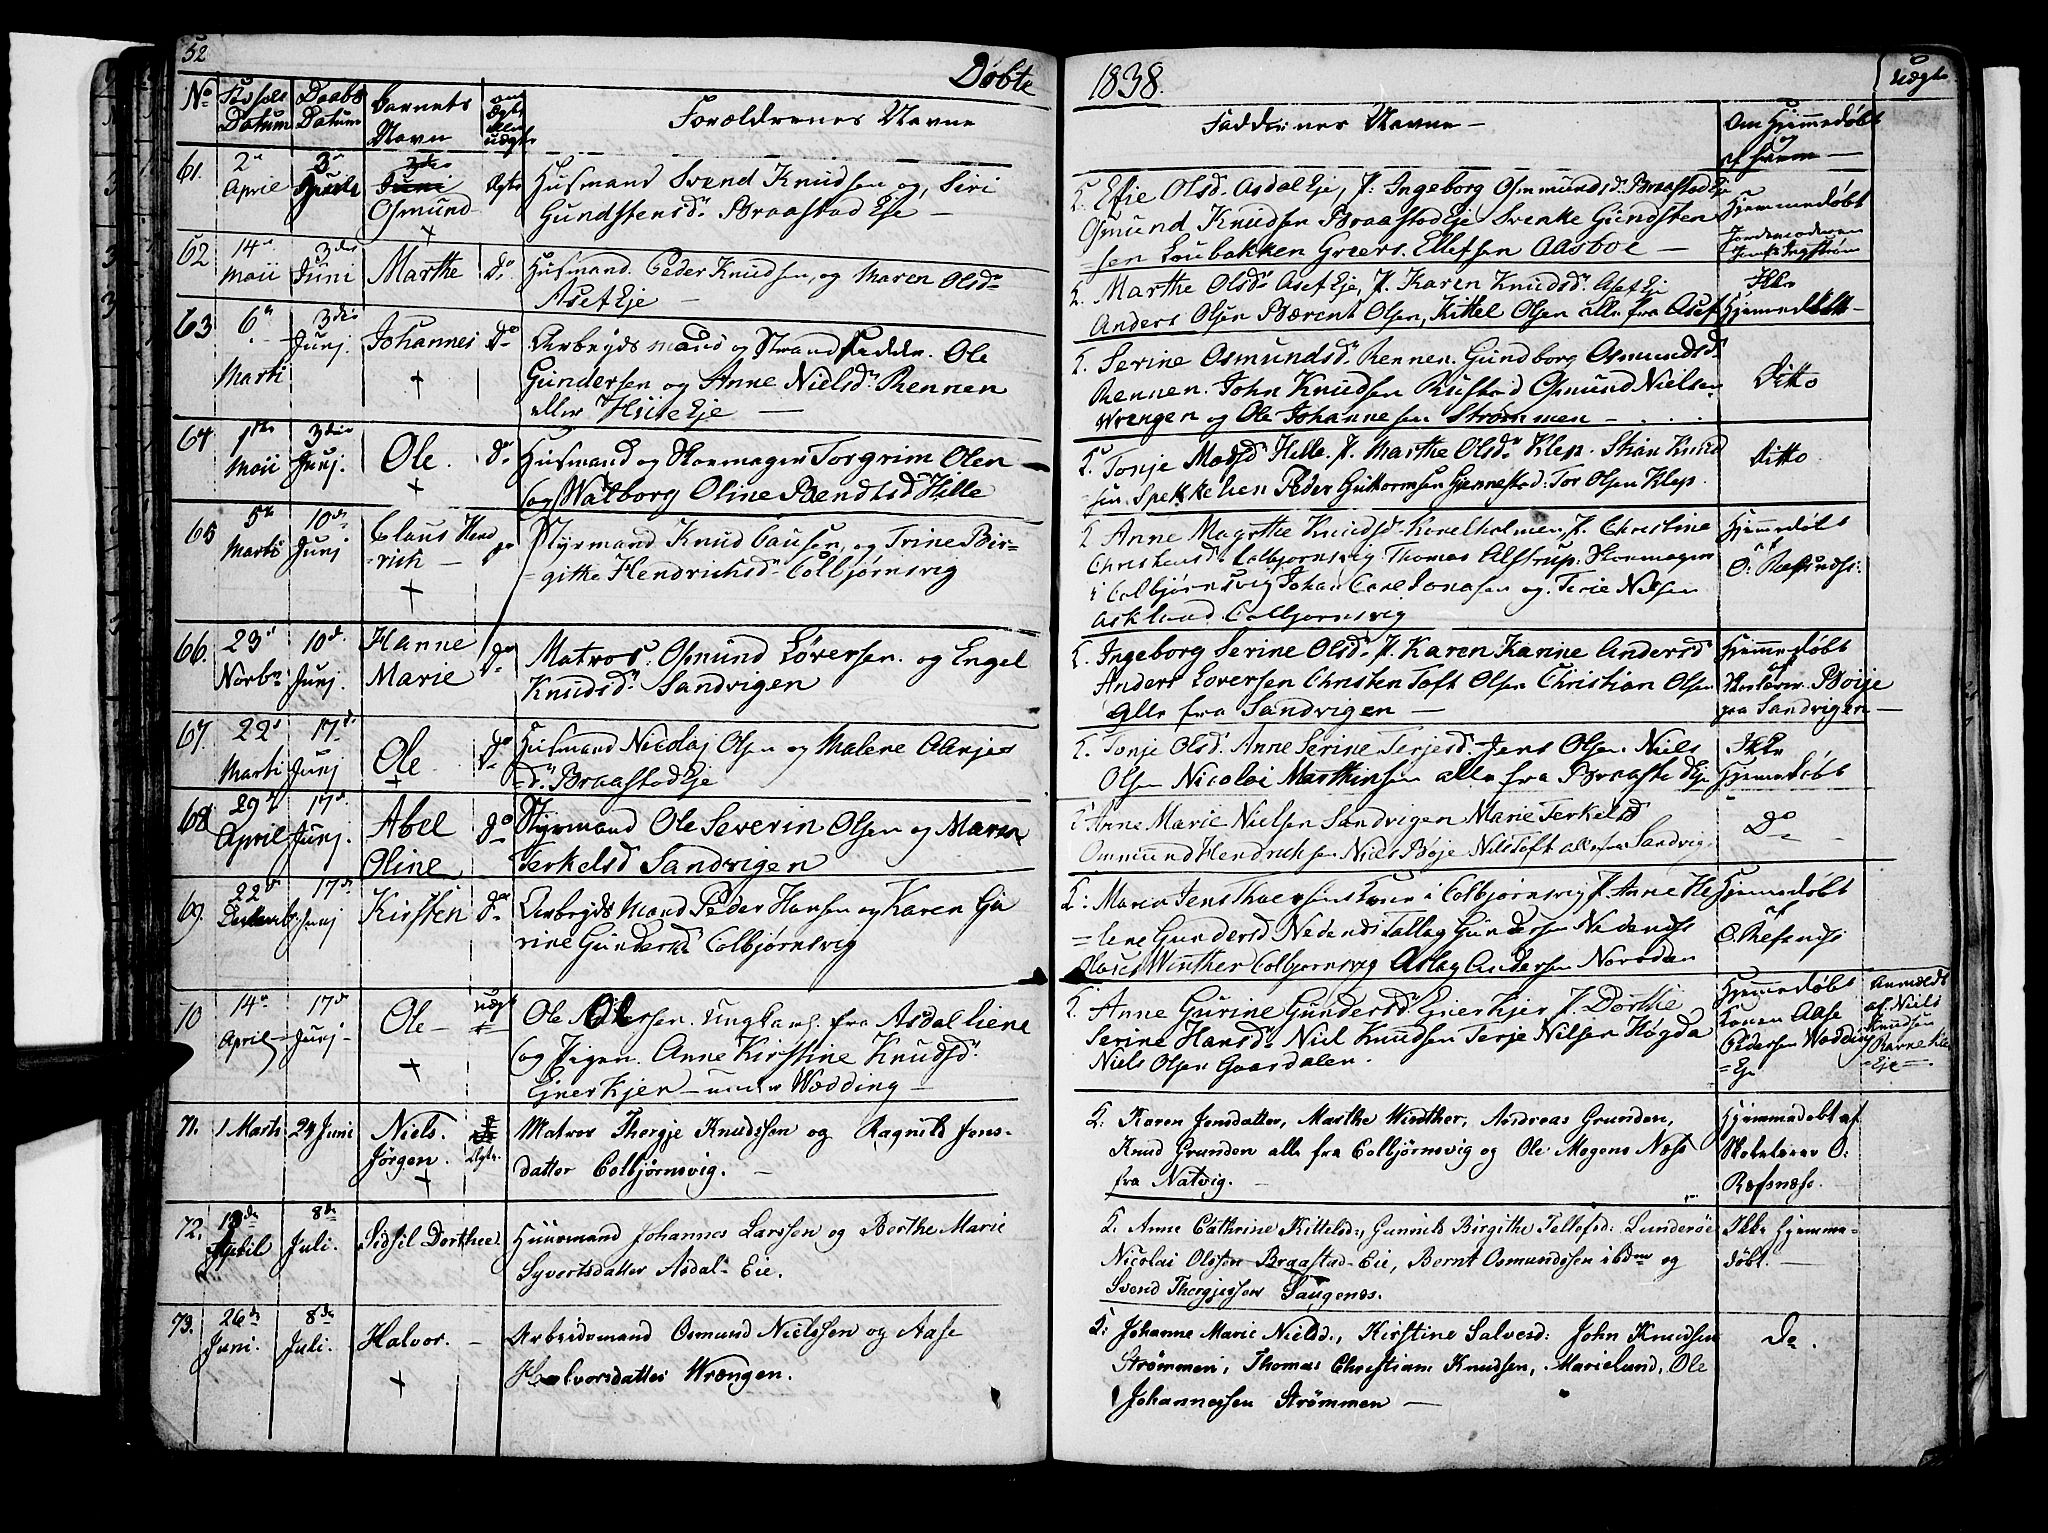 52
Døbte
1838.
Uægte
No Fødsels Datum Daabs Datum Barnets Navn om Ægte eller uægte Forældrenes Navne
Faddernes Navne — Om Hjemmedøbt af hvem —
61. 2den April 3die Juni Osmund Ægte Husmand Svend Knudsen og Siri
Gundstensdr Braastad Eje —
Efie Olsd. Asdal Eje, P. Ingeborg Osmundsd. Braastad Eje
Osmund Knudsen Braastad Eje Svenke Gundsten
sen Loubakken Greers. Ellefsen Aasboe —
Hjemmedøbt
Jordemoderen
62 14de Maii 3die Juni Marthe Do Husmand Peder Knudsen og Maren Olsdr
Aset Eje —
Marthe Olsdr Aset Eje, P. Karen Knudsd. Aset Eje
Anders Olsen Bærent Olsen, Kittel Olsen alle fra Aset
Ikke
Hjemmedøbt
63 6te Marti 3die Junj. Johannes Do Arbeyds mand og Strandsidder Ole
Gundersen og Anne Nielsdr Rennen
eller Hiite Eje —
Serine Osmundsdr Rennen. Gundborg Osmundsdr
Rennen. John Knudsen Rustad Osmund Nielsen
Wrengen og Ole Johannesen Strømmen —
Ditto
64 1ste Maii 3die Junj. Ole. Do Husmand og Skomager Torgrim Olen
og Walborg Oline Bendtsd Hille
Tonje Madsd Hille, P. Marthe Olsdr Klep. Stian Knud
sen. Peder Guttormsen Gjennestad: Tor Olsen Klep.
Ditto
65 5te Marti 10de Junj Claus Hend
rich — Do Styrmand Knud Causen, og Trine Bir=
=githe Hendrichsdr Colbjørnsvig
Anne Magrethe Knudsdr P. Christine
Christensdr Colbjørnsvig Thomas Elstrup. Skomager
i Colbjørnsvig Johan Carl Jonasen og Terie Nilsen
Askland Colbjørnsvig
Hjemmedøbt
af
66. 23de Novbr 10de Junj. Hanne
Marie Do Matros: Osmund Løversen og Engel
Knudsdr Sandvigen
Ingeborg Serine Olsdr P. Karen Karine Andersd
Anders Loversen Christen Toft Olsen Christian Olsen
alle fra Sandvigen —
Hjemmedøbt
af
Skolærer Boije
paa Sandvigen —
67. 22de Marti 17de Junj Ole Do Husmand Nicolaj Olsen og Malene
Braastad Eje
Tonje Olsd. Anne Serine Terjesd. Jens Olsen Niels
Olsen Nicolai Marthinsen alle fra Braasta Eje
Ikke
Hjemmedøbt
68 29de April 17de Junj. Abel
Oline Do Styrmand Ole Severin Olsen og Maren
Terkelsd Sandvigen
Anne Marie Nielsen Sandvigen Marie Terkelsd
Ommund Hendriksen Niels Boje Nils Toft alle fra Sandvig.
Do
69. 22de Decemb. 17de Junj Kirsten Do Arbeyds Mand Peder Hansen og Karen Gu
rine Gundersd Colbjørnsvig
Maren Jens Thorsens Kone i Colbjørnsvig P. Anne He
=lene Gundersd Nedenes Tallag Gundersen Nedenes
Claus Winther Colbjørnsvig Aslag Andersen Norodan
Hjemmedøbt
af
O. Refsnæs
70 14de April 17de Junj — Ole — uægte Ole Olsen. Ungkarl. fra Asdal liene
og Pigen. Anne Kirstine Knudsd.
Ejnerkjer — under Wedding —
Anne Gurine Gundersd. Ejnerkjer P. Dorthe
Serine Hansdr Niel Knudsen Terje Nilsen Høgda
Niels Olsen Gaasdalen.
Hjemmedøbt
Konen Aase
Pedersen Wedding
=Eje
Anmeldt
af Niels
Knudsen
Ravnekler
=Eje —
71. 1 Marts 24 Juni Niels.
Jørgen. Ægte. Matros Thergje Knudssen og Ragnild Jens-
datter Colbjørnsvig. —
Karen Jensdatter, Marthe Winther, Andreas Grunden,
Knud Grunden alle fra Colbjørnsvig og Ole Mogens Næss
fra Natvig.
Hjemmedøbt af
Skolelærer O:
Refsnæss.
72. 18de April 8de Juli. Sidsil Dorthea. Huusmand Johannes Larssen og Berthe Marie
Syvertsdatter Asdal- Eie.
Anne Cathrine Kittelsd:, Gunnild Birgithe Tellefsd: Sunderøe
Nicolai Olssen Braastad- Eie, Bernt Osmundssen ibdm og
Svend Thergjessen Saugenes.
Ikke Hjemme-
døbt. —
73. 26de Juni. 8de Juli. Halvor. — Arbeidsmand Osmund Nielssen og Aase
Halvorsdatter Wrængen.
Johanne Marie Nielsd., Kirstine Salvesd: John Knudsen
Strømmen, Thomas Christian Knudsen, Marielund, Ole
Johannessen Strømmen —
Do.